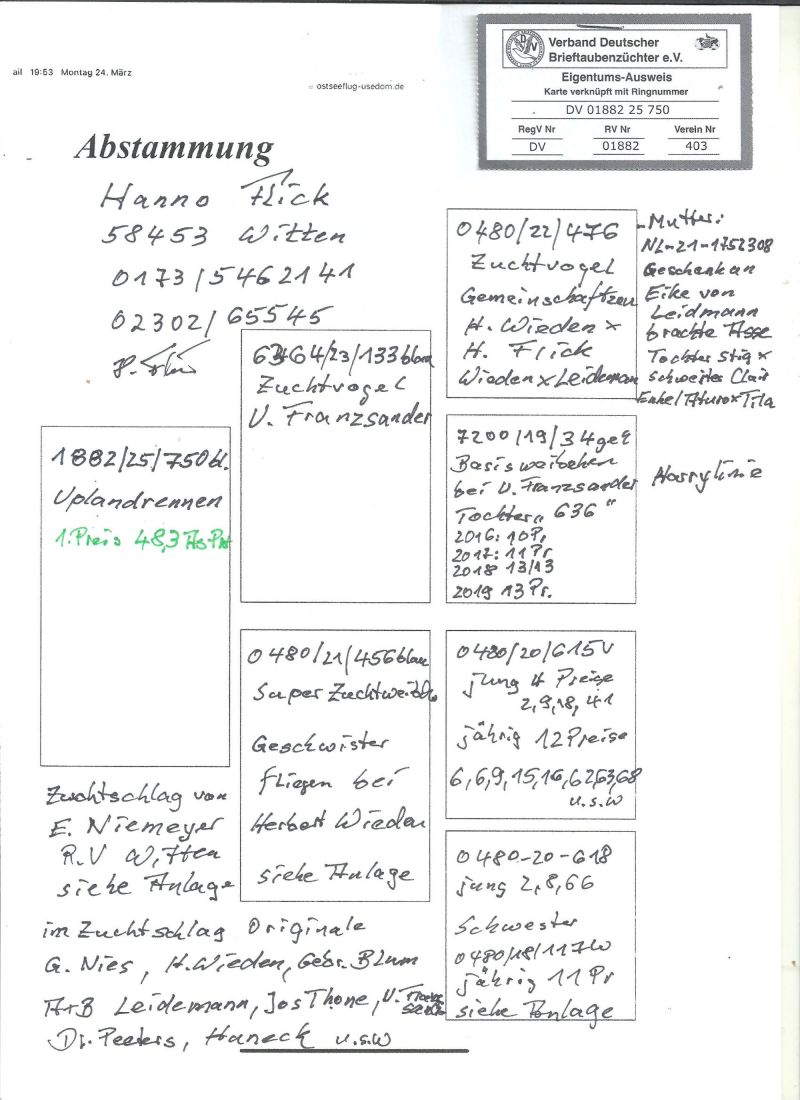 ail 19:53 Montag 24. März
ostseeflug-usedom.de
Verband Deutscher
Brieftaubenzüchter e.V.
Eigentums-Ausweis
Karte verknüpft mit Ringnummer
DV 01882 25 750
RegV Nr RV Nr Verein Nr
DV 01882 403
Abstammung
Hanno Flick
58453 Witten
0173/5462141
02302/65545
1882/25/750 bl.
Uplandrennen
1. Preis 48,3 As-Pkt
6364/23/133 blau
Zuchtvogel
V. Franzsander
0480/21/456 blau
Super Zuchtweibch
Geschwister
fliegen bei
Herbert Wieden
siehe Anlage
0480/22/476
Zuchtvogel
Gemeinschaftzen
H. Wieden x
H. Flick
Wieden x Leideman
Mutter:
NL-21-1752308
Geschenk an
Eike von
Leidmann
brachte Asse
Tochter Stig x
Schwester Clair
Enkel Aturo x Tila
7200/19/34 geh
Basisweibchen
bei V. Franzsander
Tochter „636"
2016: 10 Pr
2017: 11 Pr
2018 13/13
2019 13 Pr.
Harrylinie
0480/20/615 V
jung 4 Preise
2,9,18,41
jährig 12 Preise
6,6,9,15,16,62,63,68
u.s.w
0480-20-618
jung 2,8,66
Schwester
0480/18/117 W
jährig 11 Pr
siehe Anlage
Zuchtschlag von
E. Niemeyer
R.V Witten
siehe Anlage
im Zuchtschlag Originale
G. Nies, H. Wieden, Gebr. Blum
A+B Leidemann, Jos Thone, V. Franz
sander
Dr. Peeters, Haneck u.s.w